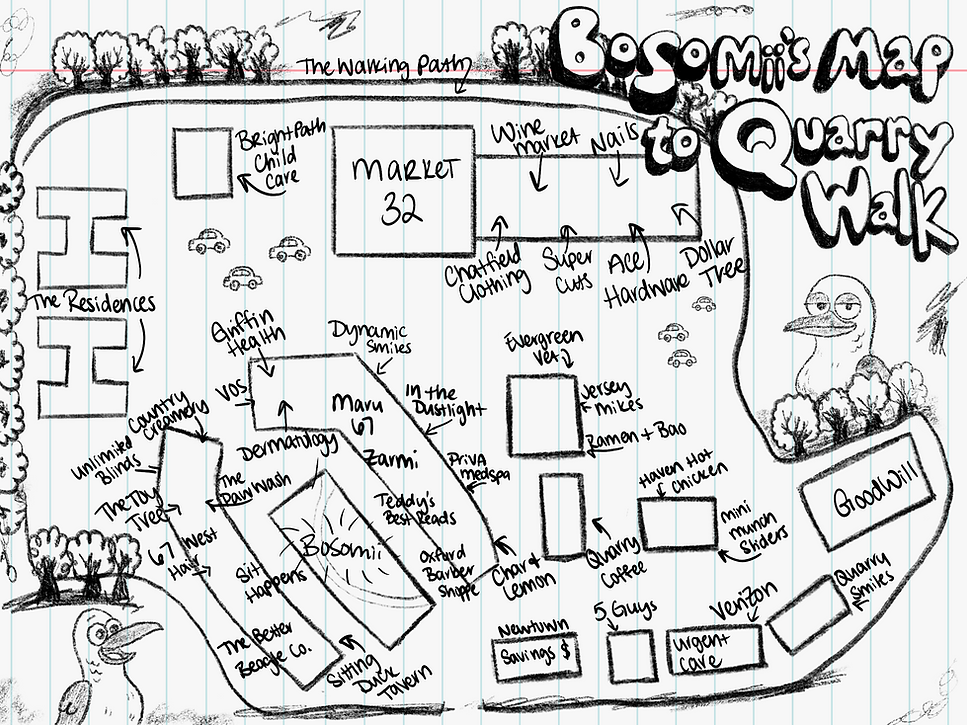 Bosomii's Map
to Quarry
Walk
The Walking Path
BrightPath
Child
Care
MARKET
32
Wine
market
Nails
Chatfield
Clothing
Super
Cuts
Ace
Hardware
Dollar
Tree
The Residences
Griffin
Health
Dynamic
Smiles
Evergreen
Vet
VOS
In the
Dustlight
Jersey
Mikes
Maru
67
Country
Creamery
Dermatology
Ramen + Bao
Unlimited
Blinds
Zarmi
PrivA
medspa
Haven Hot
Chicken
GoodWill
The Toy
Tree
The
PawWash
Teddy's
Best Reads
mini
munch
Sliders
67 West
Hair
Bosomii
Oxford
Barber
Shoppe
Char &
Lemon
Quarry
Coffee
Sit
Happens
Quarry
Smiles
5 Guys
Verizon
Newtown
Savings $
urgent
care
The Better
Beagle Co.
Sitting
Duck
Tavern